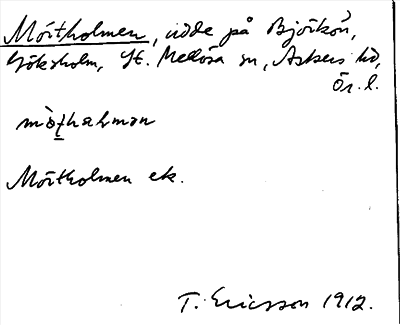 Mörtholmen, udde på Björkön,
Göksholm, St. Mellösa sn, Askers hd,
Ör. l.
mò̱ṯhəlmən
Mörtholmen ek.
T. Ericsson 1912.